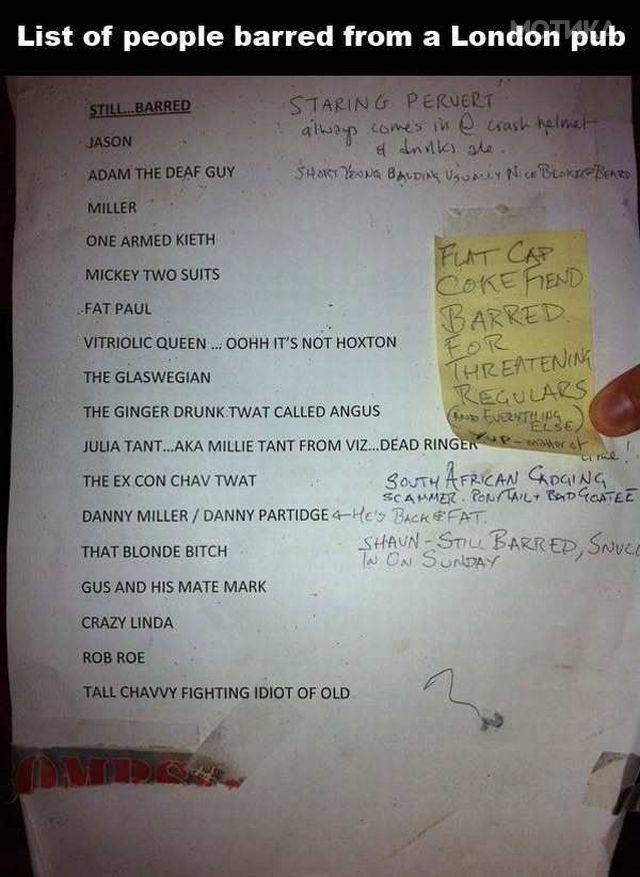 МОТИКА
List of people barred from a London pub
STILL...BARRED
STARING PERVERT
always comes in @ crash helmet
& drinks ale.
JASON
ADAM THE DEAF GUY
SHORT YOUNG BALDING USUALLY NICE BLOKE + BEARD
MILLER
ONE ARMED KIETH
MICKEY TWO SUITS
FAT PAUL
VITRIOLIC QUEEN ... OOHH IT'S NOT HOXTON
THE GLASWEGIAN
THE GINGER DRUNK TWAT CALLED ANGUS
JULIA TANT...AKA MILLIE TANT FROM VIZ...DEAD RINGER
FLAT CAP
COKE FIEND
BARRED.
FOR
THREATENING
REGULARS
(AND EVERYTHING
ELSE)
YUP - matter of
time!
THE EX CON CHAV TWAT
SOUTH AFRICAN CADGING
SCAMMER. PONYTAIL + BAD GOATEE
DANNY MILLER / DANNY PARTIDGE HE'S BACK & FAT.
THAT BLONDE BITCH
SHAUN - STILL BARRED, SNUCK
IN ON SUNDAY
GUS AND HIS MATE MARK
CRAZY LINDA
ROB ROE
TALL CHAVVY FIGHTING IDIOT OF OLD